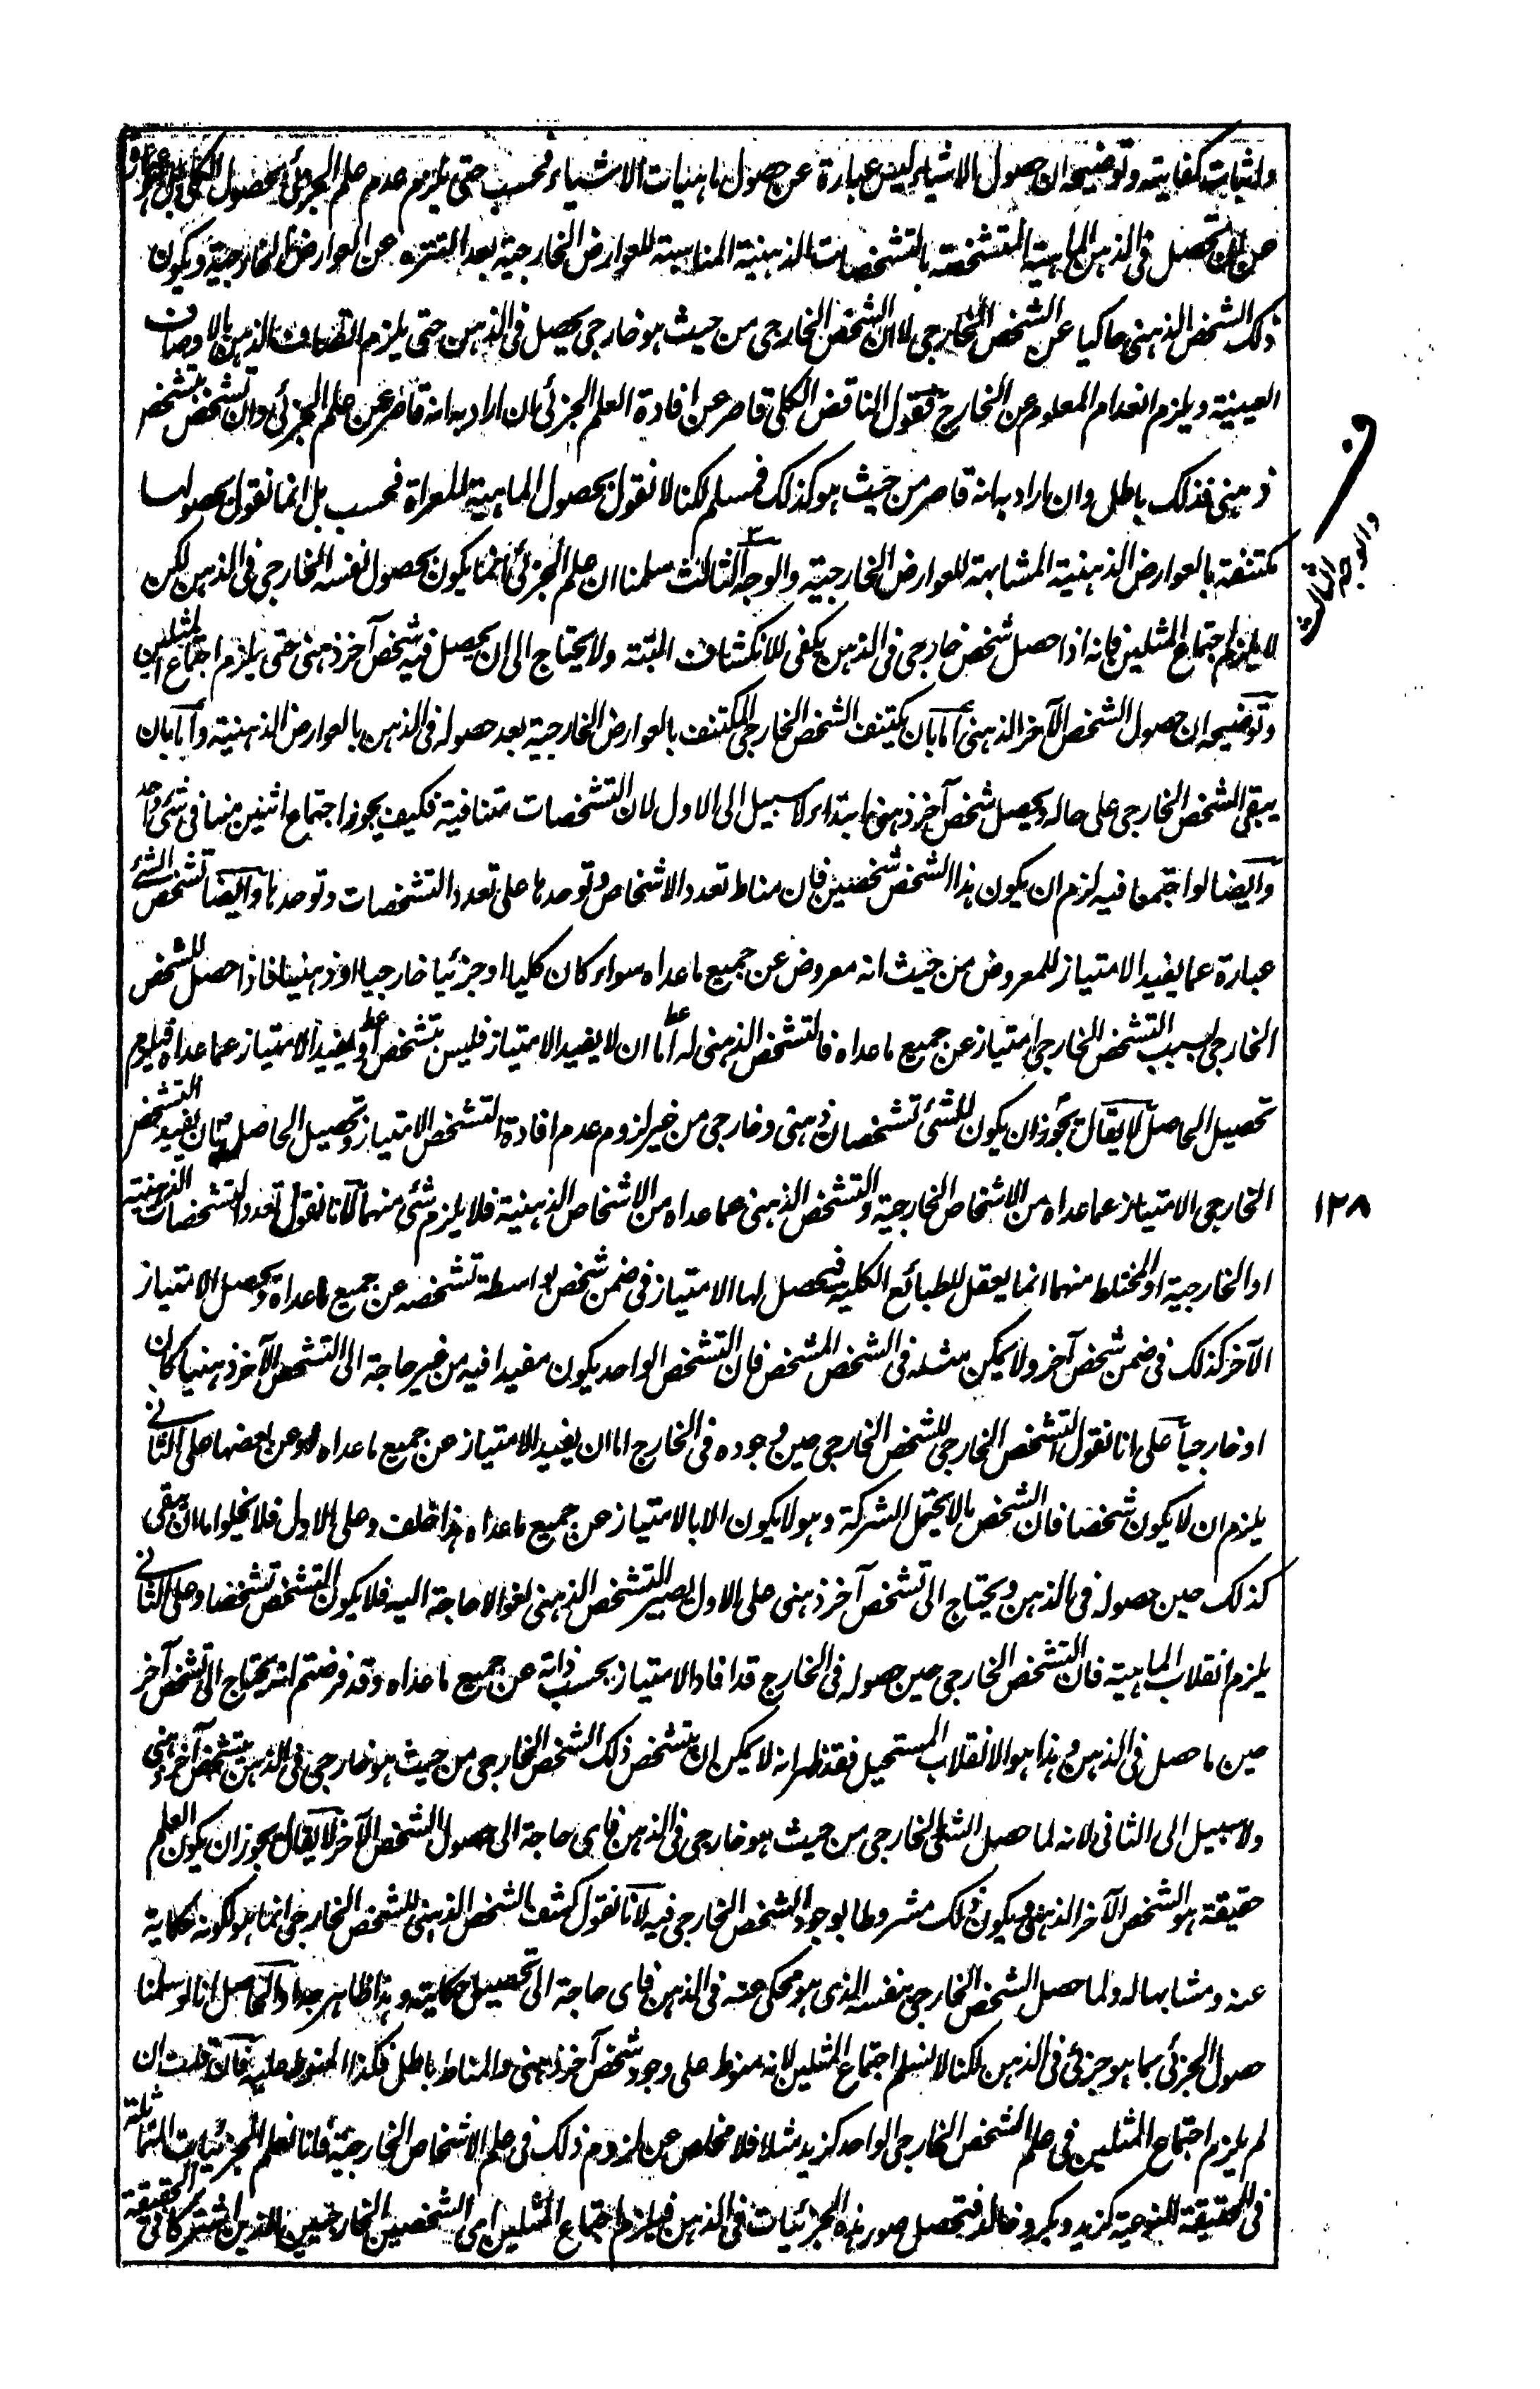 واثبات كفايته وتوضيحه ان حصول الاشياء ليس عبارة عن حصول ماهيات الاشياء فحسب حتى يلزم عدم علم الجزئى بحصول الكلى بل هو عبارة
عن ان تحصل فى الذهن الماهية المتشخصة بالتشخصات الذهنية المناسبة للعوارض الخارجية بعد التنزه عن العوارض الخارجية ويكون
ذلك الشخص الذهنى حاكيا عن الشخص الخارجى لا ان الشخص الخارجى من حيث هو خارجى يحصل فى الذهن حتى يلزم اتصاف الذهن بالاوصاف
العينية ويلزم انعدام المعلوم عن الخارج فقول الناقض الكلى قاصر عن افادة العلم الجزئى ان اراد به انه قاصر عن علم الجزئى وان تشخص بتشخص
ذهنى فذلك باطل وان اراد به انه قاصر من حيث هو كذلك فمسلم لكنا لا نقول بحصول الماهية المعراة فحسب بل انما نقول بحصولها
مكتنفة بالعوارض الذهنية المشابهة للعوارض الخارجية والوجه الثالث سلمنا ان علم الجزئى انما يكون بحصول نفسه الخارجى فى الذهن لكن
لا يلزم اجتماع المثلين فانه اذا حصل شخص خارجى فى الذهن يكفى للانكشاف البتة ولا يحتاج الى ان يحصل فيه شخص آخر ذهنى حتى يلزم اجتماع المثلين
وتوضيحه ان حصول الشخص الآخر الذهنى اما بان يكتنف الشخص الخارجى المكتنف بالعوارض الخارجية بعد حصوله فى الذهن بالعوارض الذهنية واما بان
يبقى الشخص الخارجى على حاله ويحصل شخص آخر ذهنى ابتداء لا سبيل الى الاول لان التشخصات متنافية فكيف يجوز اجتماع اثنين منها فى شئ واحد
وايضا لو اجتمعا فيه لزم ان يكون هذا الشخص شخصين فان مناط تعدد الاشخاص وتوحدها على تعدد التشخصات وتوحدها وايضا تشخص الشئ
عبارة عما يفيد الامتياز للمعروض من حيث انه معروض عن جميع ما عداه سواء كان كليا او جزئيا خارجيا او ذهنيا فاذا حصل للشخص
الخارجى بسبب التشخص الخارجى امتياز عن جميع ما عداه فالتشخص الذهنى له اما ان لا يفيد الامتياز فليس بتشخص او يفيد الامتياز عما عداه فيلزم
تحصيل الحاصل لا يقال يجوز ان يكون للشئ تشخصان ذهنى وخارجى من غير لزوم عدم افادة التشخص الامتياز وتحصيل الحاصل بان يفيد التشخص
الخارجى الامتياز عما عداه من الاشخاص الخارجية والتشخص الذهنى عما عداه من الاشخاص الذهنية فلا يلزم شئ منهما لانا نقول تعدد التشخصات الذهنية
او الخارجية او المختلط منهما انما يعقل للطبائع الكلية فيحصل لها الامتياز فى ضمن شخص بواسطة تشخصه عن جميع ما عداه ويحصل الامتياز
الآخر كذلك فى ضمن شخص آخر ولا يمكن مثله فى الشخص المشخص فان التشخص الواحد يكون مفيدا فيه من غير حاجة الى التشخص الآخر ذهنيا كان
او خارجيا على انا نقول التشخص الخارجى للشخص الخارجى حين وجوده فى الخارج اما ان يفيد الامتياز عن جميع ما عداه او عن بعضها على الثانى
يلزم ان لا يكون شخصا فان الشخص ما لا يحتمل الشركة وهو لا يكون الا بالامتياز عن جميع ما عداه هذا خلف وعلى الاول فلا يخلوا اما ان يبقى
كذلك حين حصوله فى الذهن ويحتاج الى تشخص آخر ذهنى على الاول يصير التشخص الذهنى لغوا لا حاجة اليه فلا يكون التشخص تشخصا وعلى الثانى
يلزم انقلاب الماهية فان التشخص الخارجى حين حصوله فى الخارج قد افاد الامتياز بحسب ذاته عن جميع ما عداه وقد فرضتم انه يحتاج الى تشخص آخر
حين ما حصل فى الذهن وهذا هو الانقلاب المستحيل فقد ظهر انه لا يمكن ان يتشخص ذلك الشخص الخارجى من حيث هو خارجى فى الذهن بتشخص آخر ذهنى
ولا سبيل الى الثانى لانه لما حصل الشئ الخارجى من حيث هو خارجى فى الذهن فاى حاجة الى حصول الشخص الآخر لا يقال يجوز ان يكون العلم
حقيقة هو الشخص الآخر الذهنى ويكون ذلك مشروطا بوجود الشخص الخارجى فيه لانا نقول كشف الشخص الذهنى للشخص الخارجى انما هو لكونه حكاية
عنه ومشابها له ولما حصل الشخص الخارجى بنفسه الذى هو محكى عنه فى الذهن فاى حاجة الى تحصيل حكايته وهذا ظاهر جدا والحاصل انا لو سلمنا
حصول الجزئى بما هو جزئى فى الذهن لكنا لا نسلم اجتماع المثلين لانه منوط على وجود شخص آخر ذهنى والمناط باطل فكذا المنوط عليه فان قلت ان
لم يلزم اجتماع المثلين فى علم الشخص الخارجى الواحد كزيد مثلا فلا مخلص عن لزوم ذلك فى علم الاشخاص الخارجية فانا نعلم الجزئيات المتماثلة
فى الحقيقة النوعية كزيد وبكر وخالد فتحصل صور هذه الجزئيات فى الذهن فيلزم اجتماع المثلين اى الشخصين الخارجيين اللذين اشتركا فى الحقيقة
والوجه الثالث
١٢٨